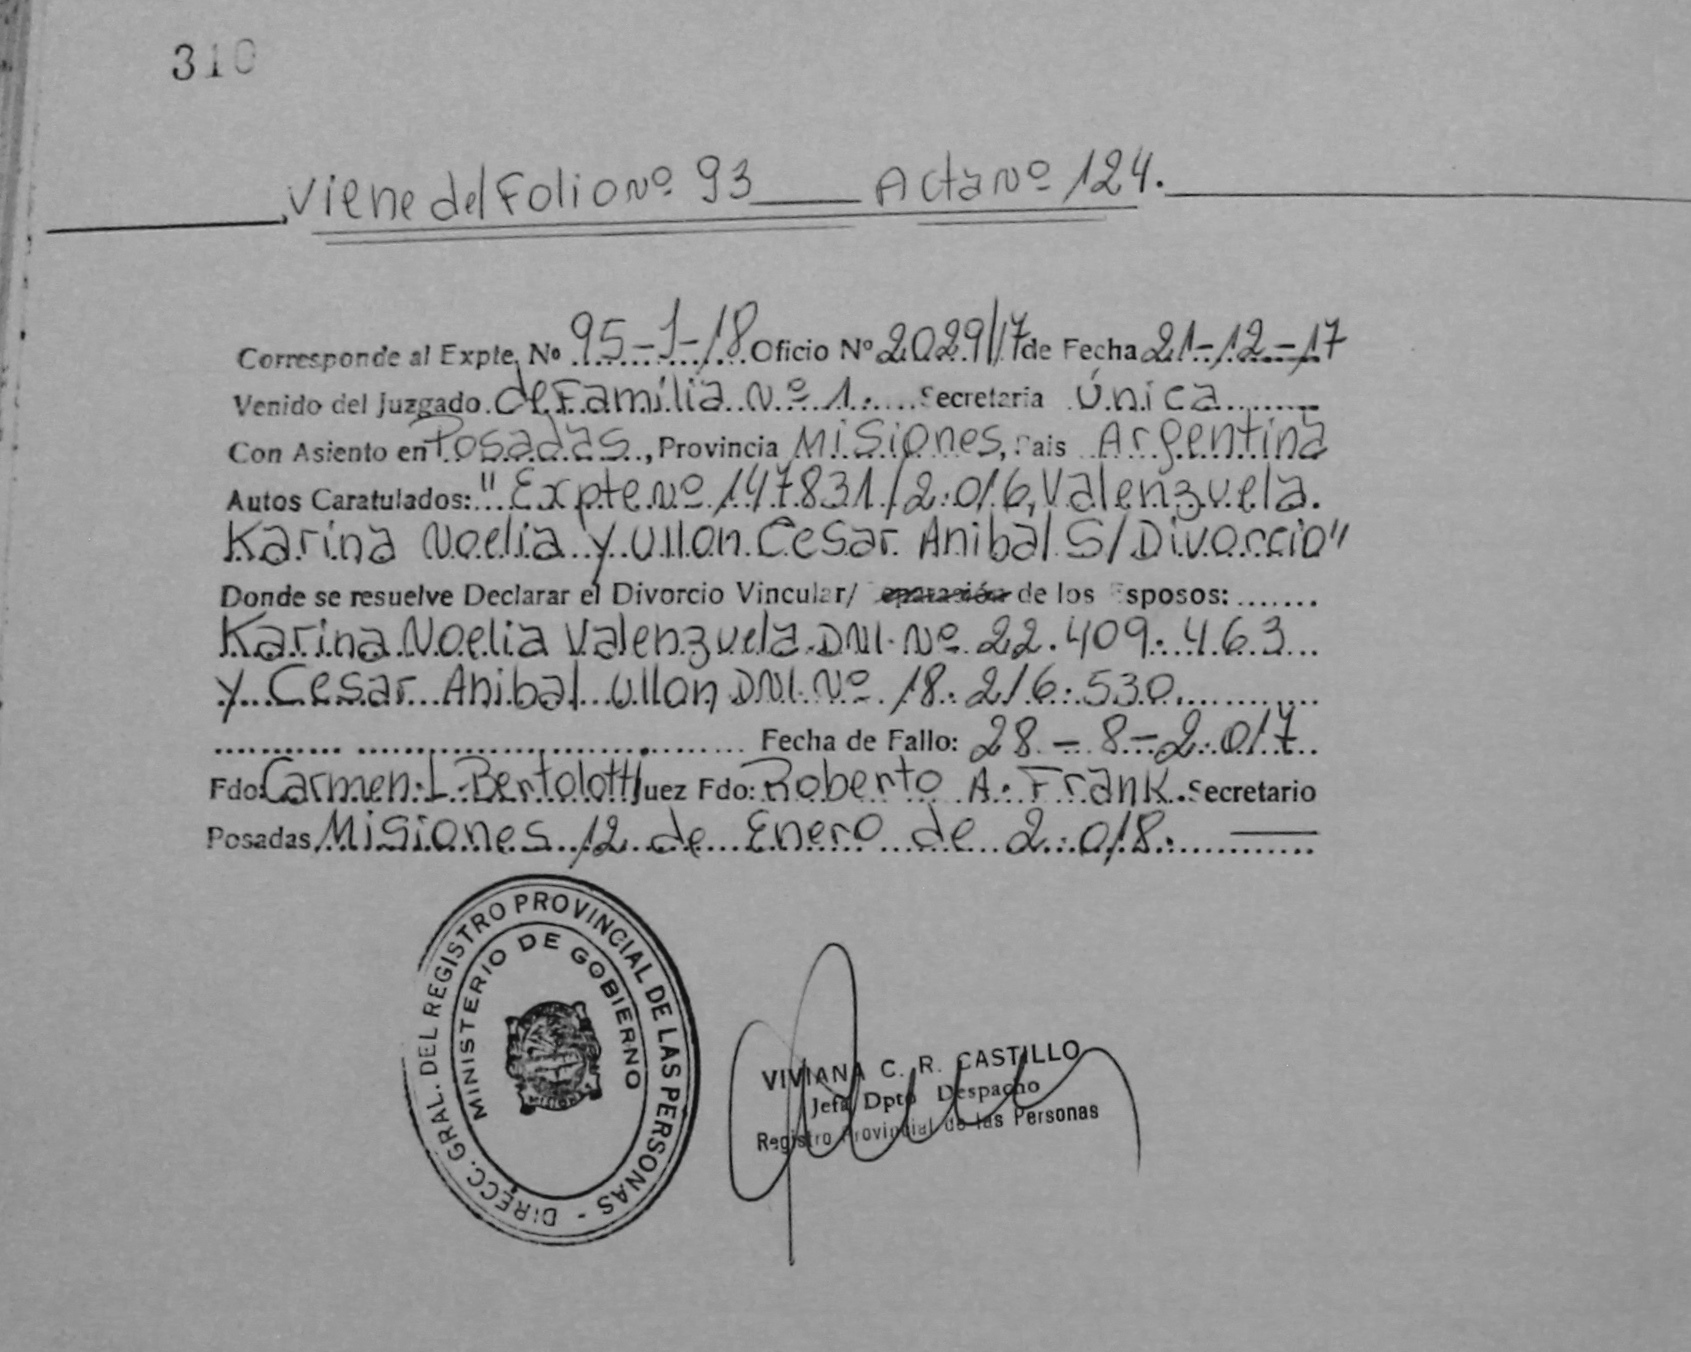 310
Viene del Folio Nº 93 Acta Nº 124.
Corresponde al Expte. Nº 95-1-18 Oficio Nº 2029/17 de Fecha 21-12-17
Venido del Juzgado de Familia Nº 1. Secretaria Única
Con Asiento en Posadas, Provincia Misiones, Pais Argentina
Autos Caratulados: "Expte Nº 147831/2.016, Valenzuela.
Karina Noelia y Ullon Cesar Anibal S/Divorcio"
Donde se resuelve Declarar el Divorcio Vincular/ Separación de los Esposos:
Karina Noelia Valenzuela DNI. Nº 22.409.463
y Cesar Anibal Ullon DNI. Nº 18.216.530
Fecha de Fallo: 28-8-2.017
Fdo: Carmen L. Bertolotti Juez Fdo: Roberto A. Frank. Secretario
Posadas, Misiones 12 de Enero de 2.018.
DIRECC. GRAL. DEL REGISTRO PROVINCIAL DE LAS PERSONAS -
MINISTERIO DE GOBIERNO
VIVIANA C. R. CASTILLO
Jefa Dpto Despacho
Registro Provincial de las Personas